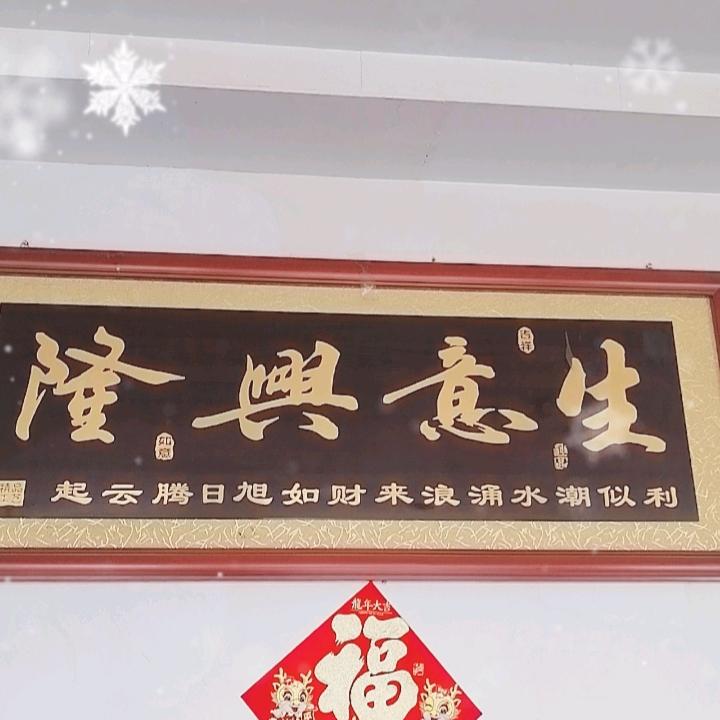 生意興隆
吉祥
如意
利似潮水涌浪来财如旭日腾云起
龍年大吉
福